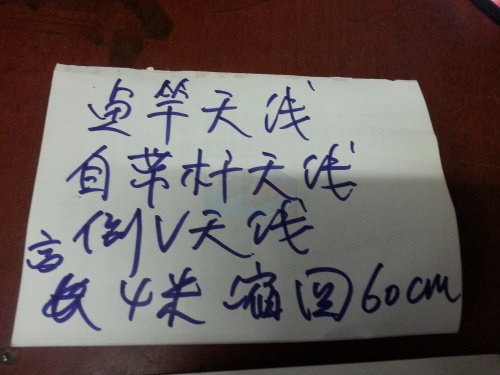 鱼竿天线
自带杆天线
倒V天线
高4米 缩回60cm